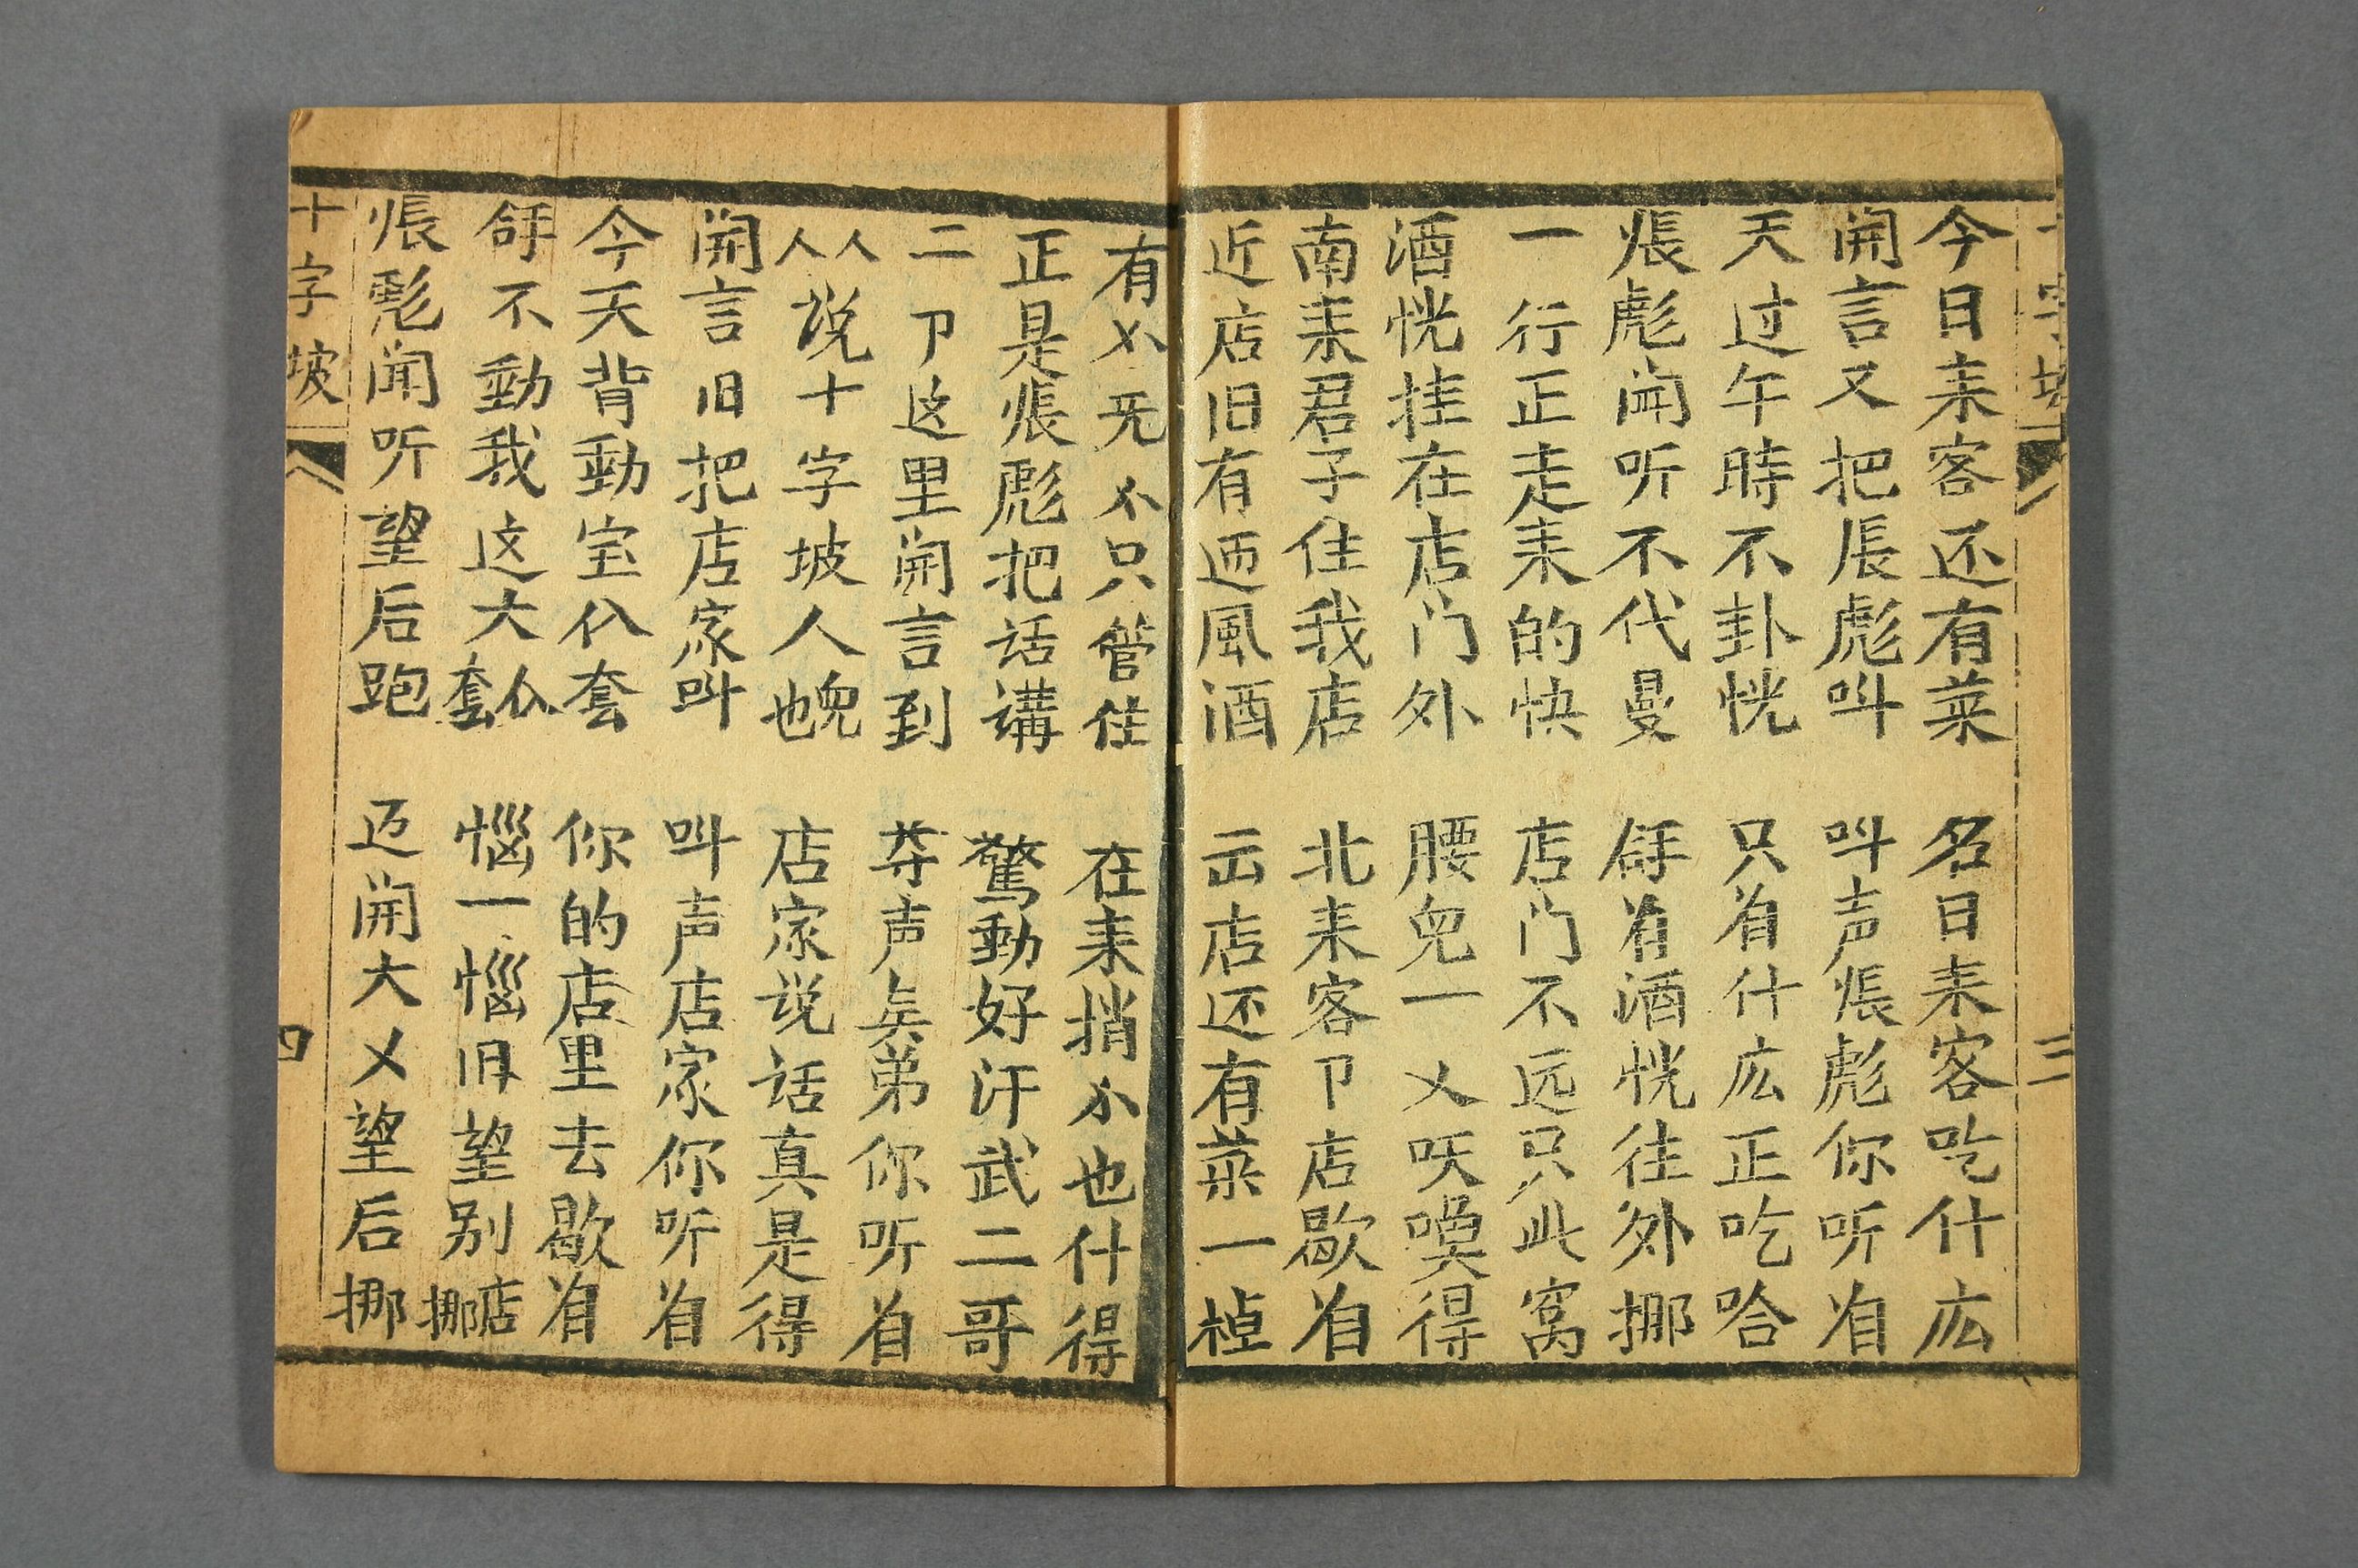 今日耒客还有菜　名日耒客吃什広
開言又把張彪叫　叫声張彪你听着
天过午時不卦恍　只着什広正吃哈
張彪闻听不代曼　舒着酒恍往外挪
一行正走耒的快　店门不远只此窝
酒恍挂在店门外　腰兜一乂呋嘆得
南耒君子住我店　北耒客卩店歇着
近店旧有迊風酒　云店还有菜一棹
有 旡 只管住　在耒捎 也什得
正是張彪把话講　驚動好汗武二哥
二卩这里開言到　尊声矣弟你听着
人人说十字坡人也兜　店家说话真是得
開言旧把店家叫　叫声店家你听着
今天背動宝仈套　你的店里去歇着
舒不動我这大 套　惱一惱旧望别店挪
張彪闻听望后跑　迈開大乂望后挪
十字坡
四
三